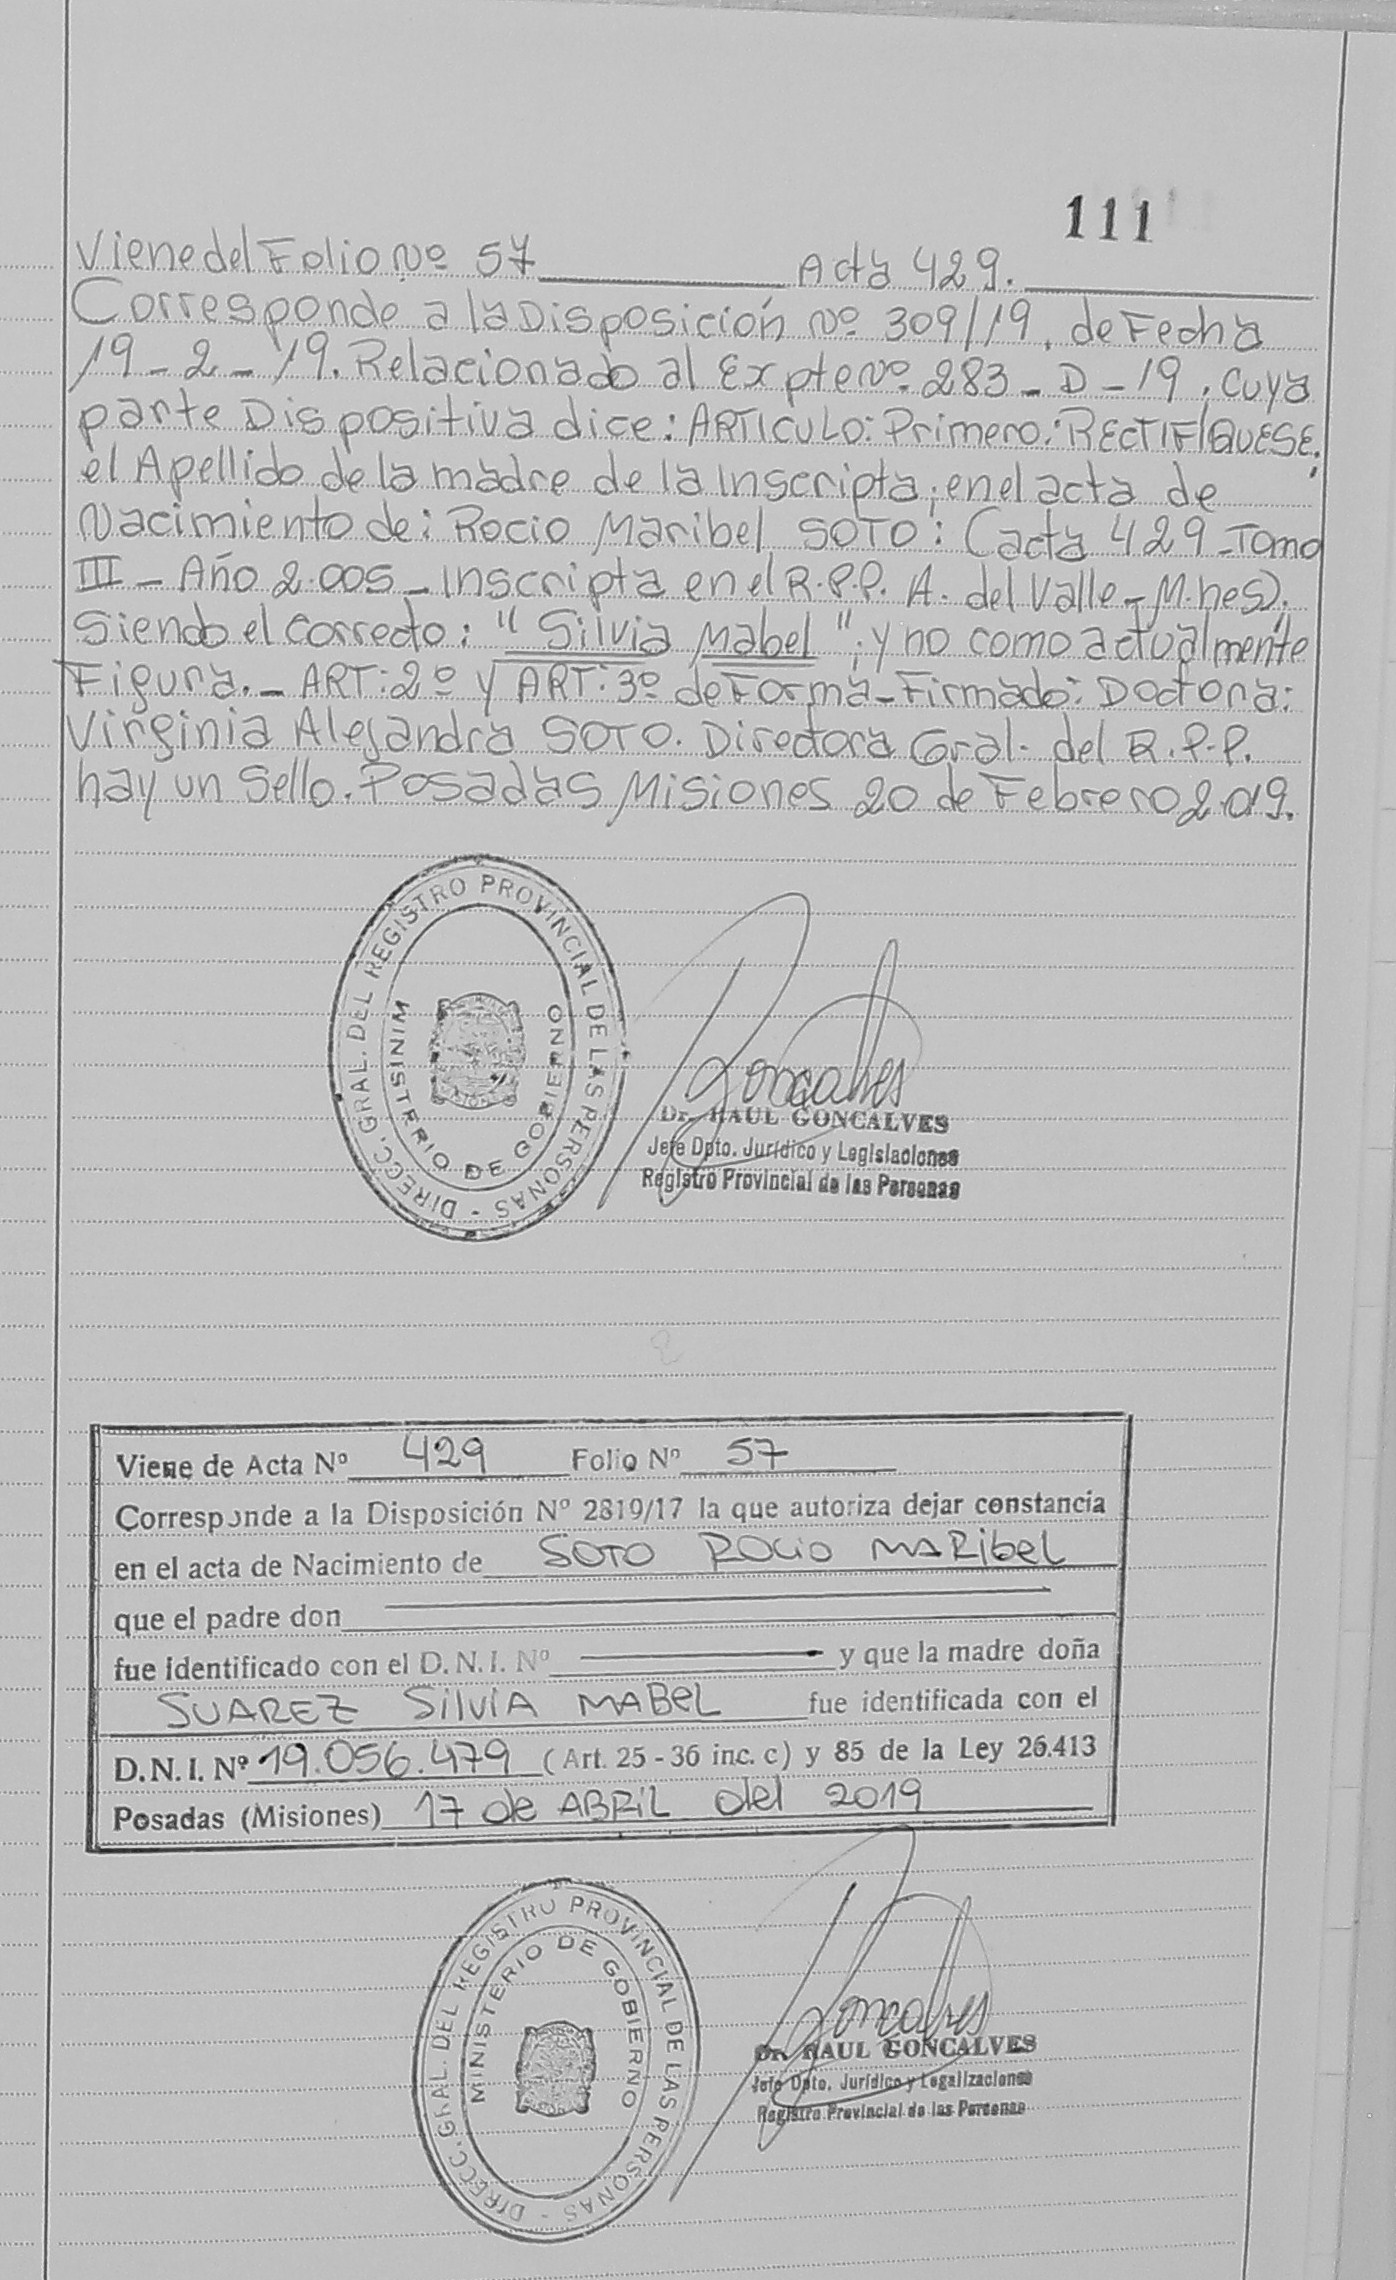 111
Viene del Folio Nº 57 Acta 429.
Corresponde a la Disposición Nº 309/19, de Fecha
19-2-19. Relacionado al Expte Nº 283-D-19, cuya
parte Dispositiva dice: ARTICULO: Primero: RECTIFIQUESE;
el Apellido de la madre de la Inscripta; en el acta de
Nacimiento de: Rocio Maribel SOTO: (acta 429-Tomo
III-Año 2.005-Inscripta en el R.P.P. A. del Valle-M.nes).
Siendo el correcto: "Silvia Mabel"; y no como actualmente
Figura.- ART:2º y ART:3º de Forma-Firmado: Doctora:
Virginia Alejandra SOTO. Directora Gral. del R.P.P.
hay un Sello. Posadas Misiones 20 de Febrero 2.019.
DIRECC. GRAL. DEL REGISTRO PROVINCIAL DE LAS PERSONAS -
MINISTERIO DE GOBIERNO
Goncalves
Dr. RAUL GONCALVES
Jefe Dpto. Jurídico y Legislaciones
Registro Provincial de las Personas
Viene de Acta Nº 429 Folio Nº 57
Corresponde a la Disposición Nº 2819/17 la que autoriza dejar constancia
en el acta de Nacimiento de SOTO ROCIO MARIBEL
que el padre don
fue identificado con el D.N.I. Nº y que la madre doña
SUAREZ SILVIA MABEL fue identificada con el
D.N.I. Nº 19.056.479 (Art. 25 - 36 inc. c) y 85 de la Ley 26.413
Posadas (Misiones) 17 de ABRIL del 2019
DIRECC. GRAL. DEL REGISTRO PROVINCIAL DE LAS PERSONAS -
MINISTERIO DE GOBIERNO
Goncalves
Dr. RAUL GONCALVES
Jefe Dpto. Jurídico y Legalizaciones
Registro Provincial de las Personas